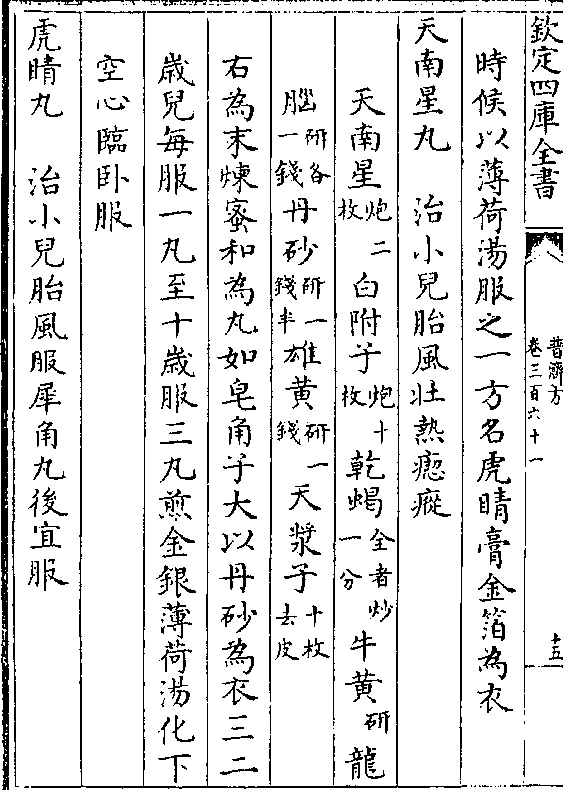 欽定四庫全書
普濟方
卷三百六十一
十五
時候以薄荷湯服之一方名虎睛膏金箔為衣
天南星丸 治小兒胎風壯熱瘛瘲
天南星炮二枚白附子炮十枚乾蝎全者炒一分牛黃研龍
腦研各一錢丹砂研一錢半雄黃研一錢天漿子十枚去皮
右為末煉蜜和為丸如皂角子大以丹砂為衣三二
歲兒每服一丸至十歲服三丸煎金銀薄荷湯化下
空心臨卧服
虎睛丸 治小兒胎風服犀角丸後宜服